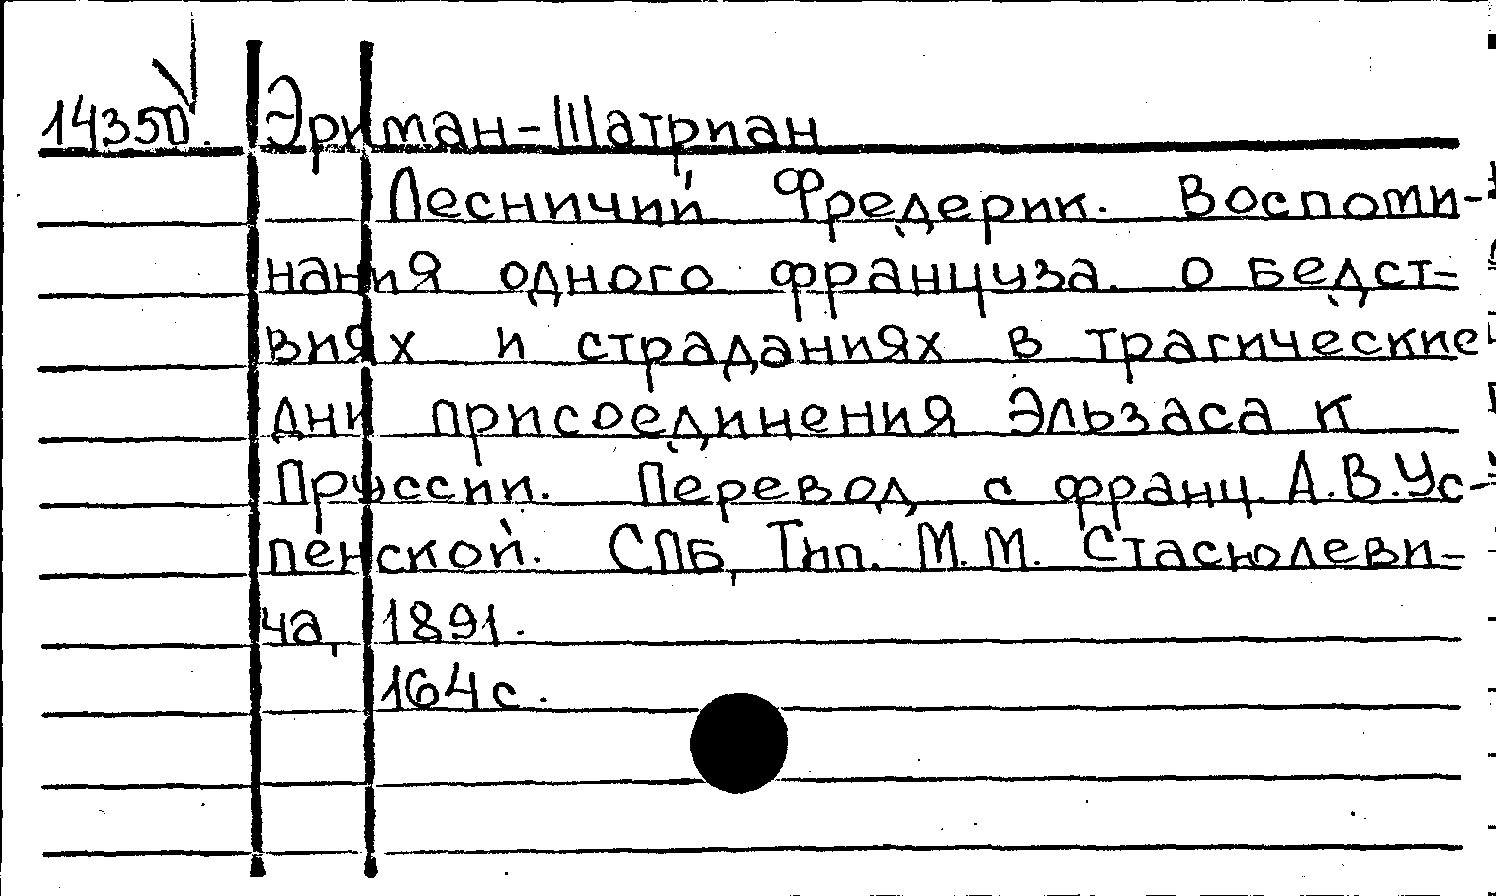 14350. Эркман-Шатриан
Лесничий Фредерик. Воспоми-
нания одного француза о бедст-
виях и страданиях в трагические
дни присоединения Эльзаса к
Пруссии. Перевод с франц. А.В.Ус-
пенской. СПБ, Тип. М.М. Стасюлеви-
ча, 1891.
164с.